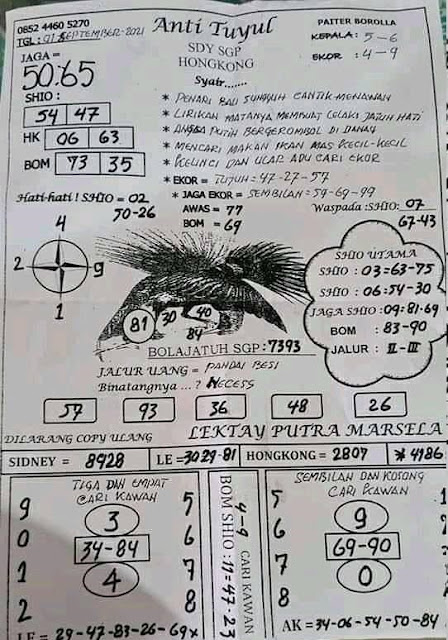 0852 4460 5270
TGL : 01 SEPTEMBER-2021
Anti Tuyul
SDY SGP
HONGKONG
PAITER BOROLLA
KEPALA : 5-6
EKOR : 4-9
JAGA =
50:65
Syair.......
SHIO :
54 47
HK 06 63
BOM 73 35
* PENARI BALI SUNGGUH CANTIK MENAWAN
* LIRIKAN MATANYA MEMBUAT LELAKI JATUH HATI
* ANGSA PUTIH BERGEROMBOL DI DANAU
* MENCARI MAKAN IKAN MAS KECIL-KECIL
* KELINCI DAN ULAR ADU CARI EKOR
* EKOR = TUJUH = 47-27-57
* JAGA EKOR = SEMBILAN = 59-69-99
Hati-hati ! SHIO = 02
50-26
AWAS = 77
BOM = 69
Waspada :SHIO: 07
67-43
4
2 9
1
SHIO UTAMA
SHIO : 03=63-75
SHIO : 06=54-30
JAGA SHIO : 09=81-69
BOM : 83-90
JALUR : II-III
81 30 40
84
BOLAJATUH SGP : 7393
JALUR UANG = PANDAI BESI
Binatangnya ... ? NECESS
57 93 36 48 26
DILARANG COPY ULANG
LEKTAY PUTRA MARSELA
SIDNEY = 8928 LE =3029-81 HONGKONG = 2807 * 4186
TIGA DAN EMPAT
CARI KAWAN
9 5
3
0 6
34-84
1 7
4
2 8
LE = 29-47-83-26-69x
4-9 CARI KAWAN
BOM SHIO : 11=47-23
SEMBILAN DAN KOSONG
CARI KAWAN
5
9
6
69-90
7
0
8
AK = 34-06-54-50-84